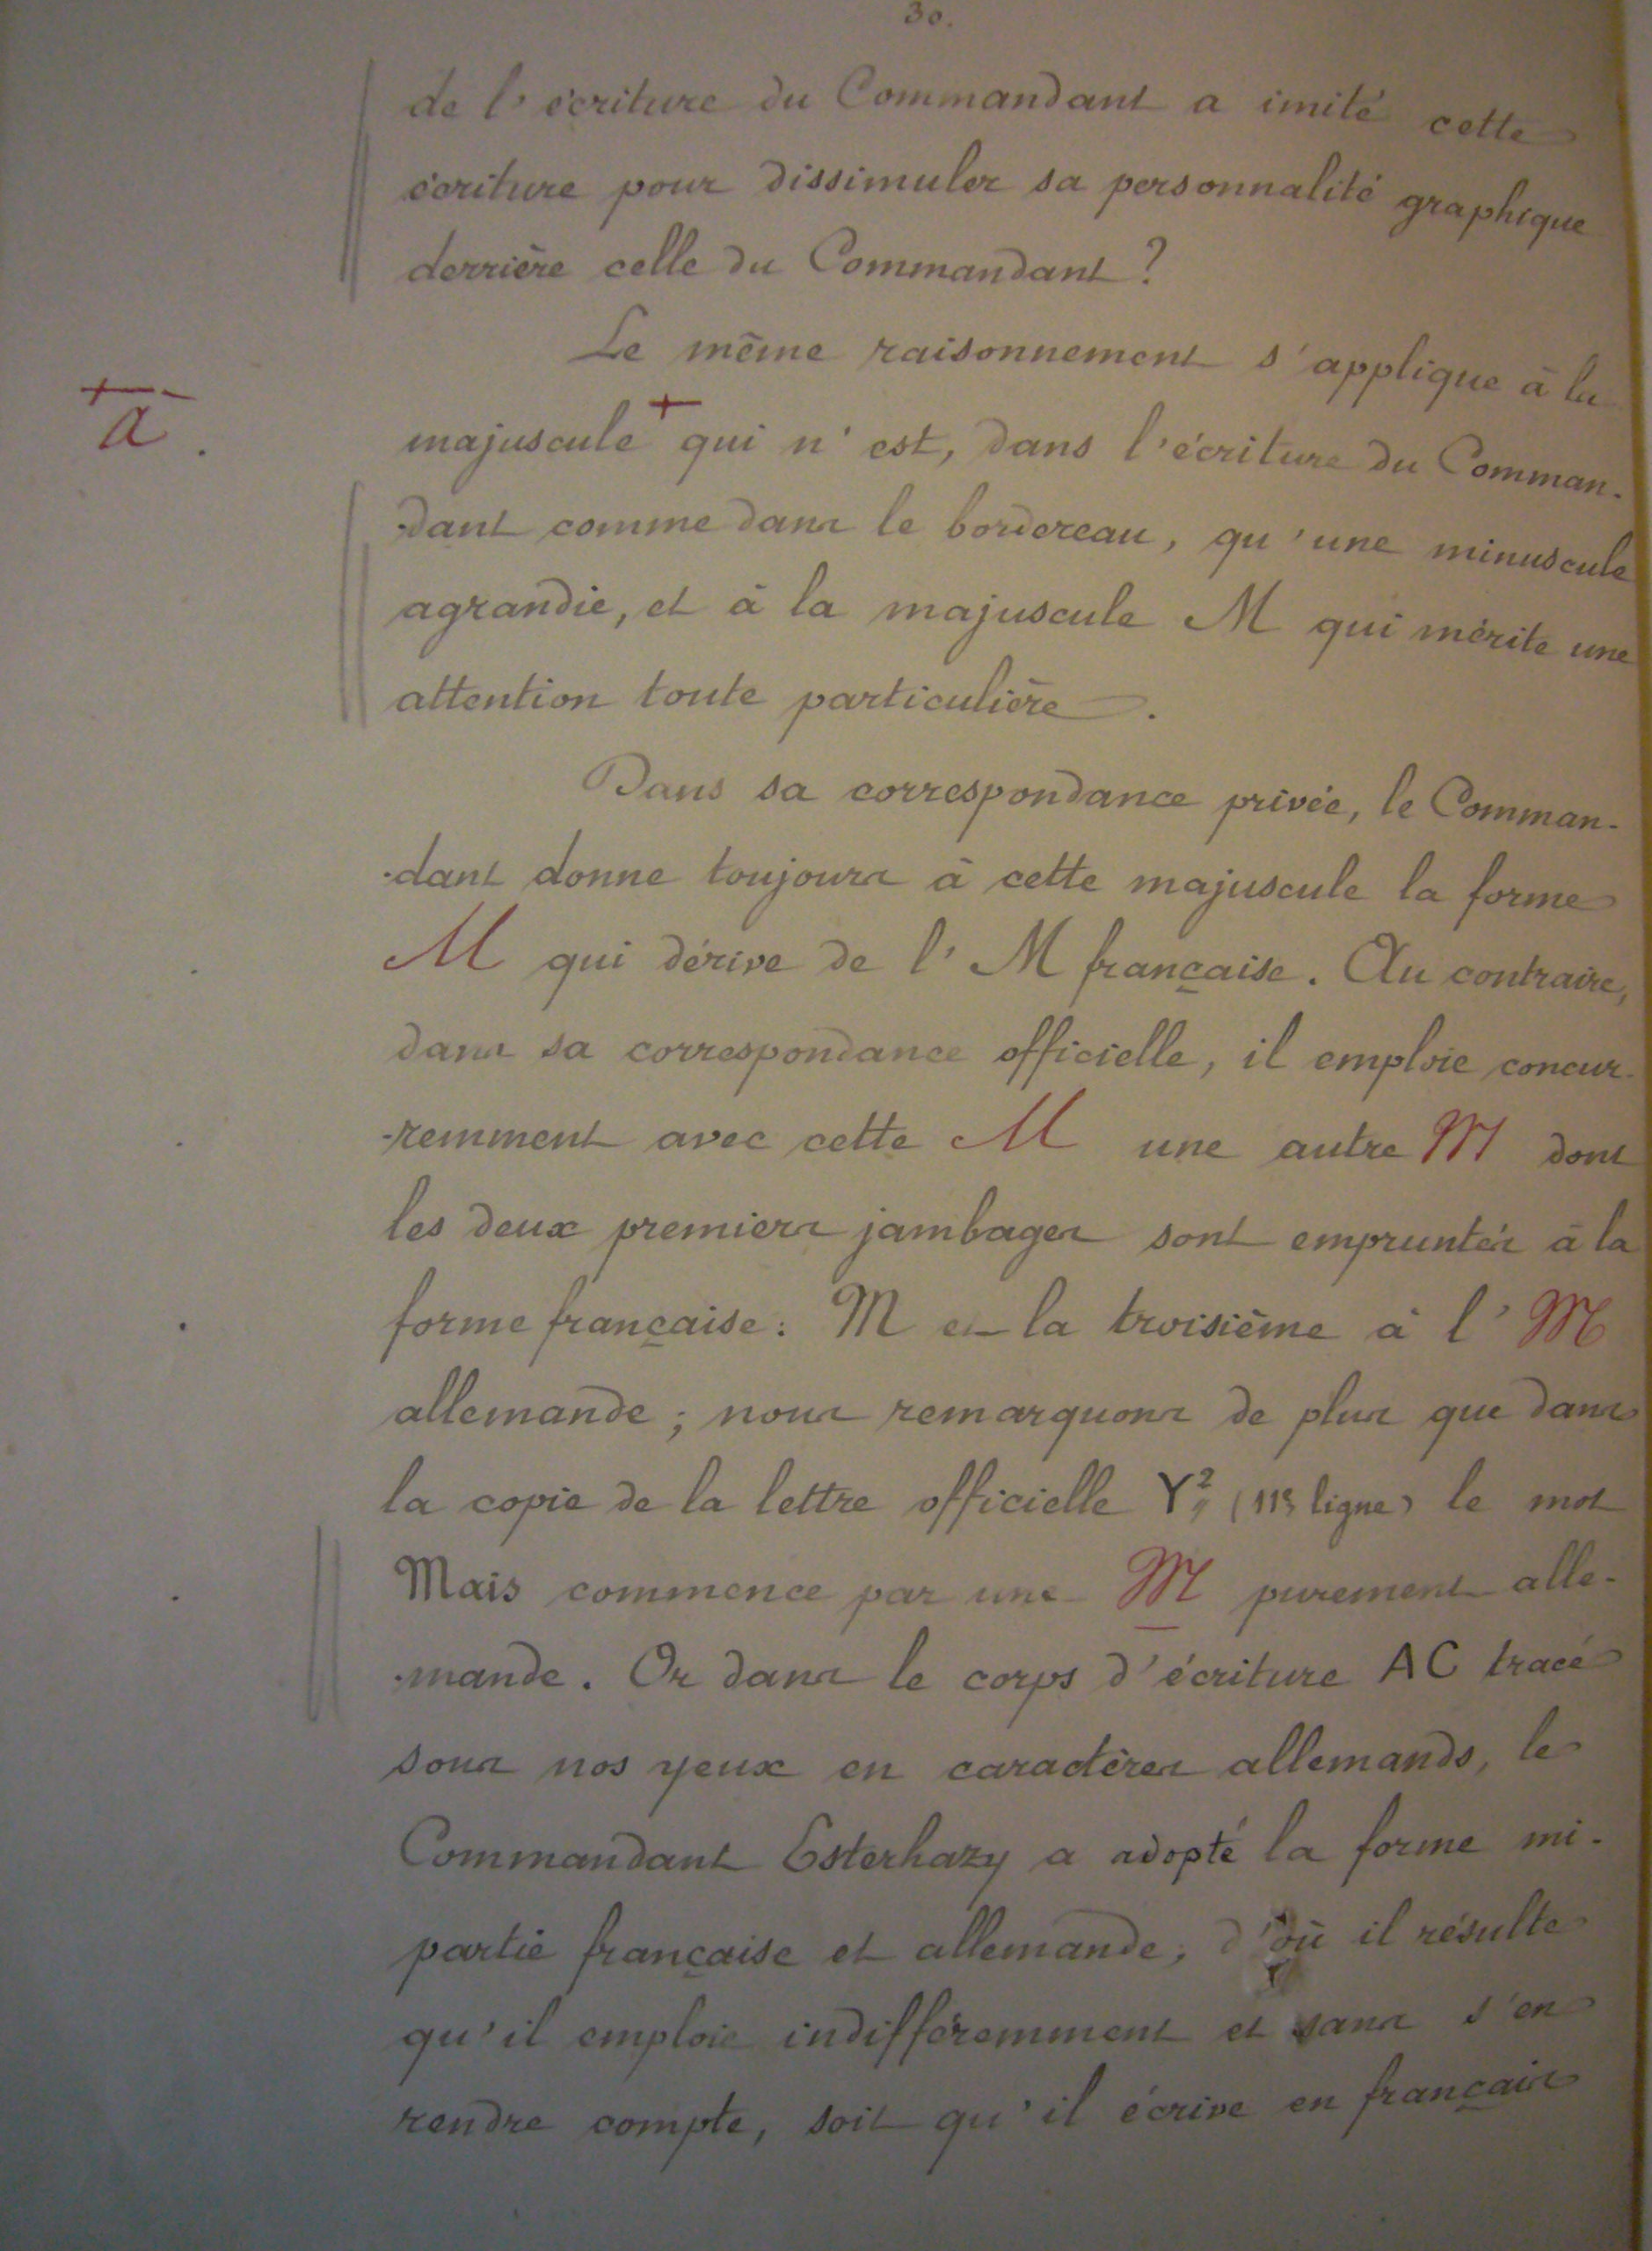 30.
de l'écriture du Commandant a imité cette
écriture pour dissimuler sa personnalité graphique
derrière celle du Commandant ?
Le même raisonnement s'applique à la
+ a.
majuscule + qui n'est, dans l'écriture du Comman-
-dant comme dans le bordereau, qu'une minuscule
agrandie, et à la majuscule M qui mérite une
attention toute particulière.
Dans sa correspondance privée, le Comman-
-dant donne toujours à cette majuscule la forme
M qui dérive de l'M française. Au contraire,
dans sa correspondance officielle, il emploie concur-
-remment avec cette M une autre M dont
les deux premiers jambages sont empruntés à la
forme française : M et la troisième à l'M
allemande ; nous remarquons de plus que dans
la copie de la lettre officielle Y², (11e ligne) le mot
Mais commence par une M purement alle-
-mande. Or dans le corps d'écriture AC tracé
sous nos yeux en caractères allemands, le
Commandant Esterhazy a adopté la forme mi-
partie française et allemande, d'où il résulte
qu'il emploie indifféremment et sans s'en
rendre compte, soit qu'il écrive en français